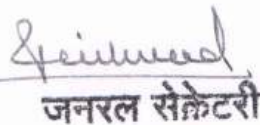 जनरल सेक्रेटरी